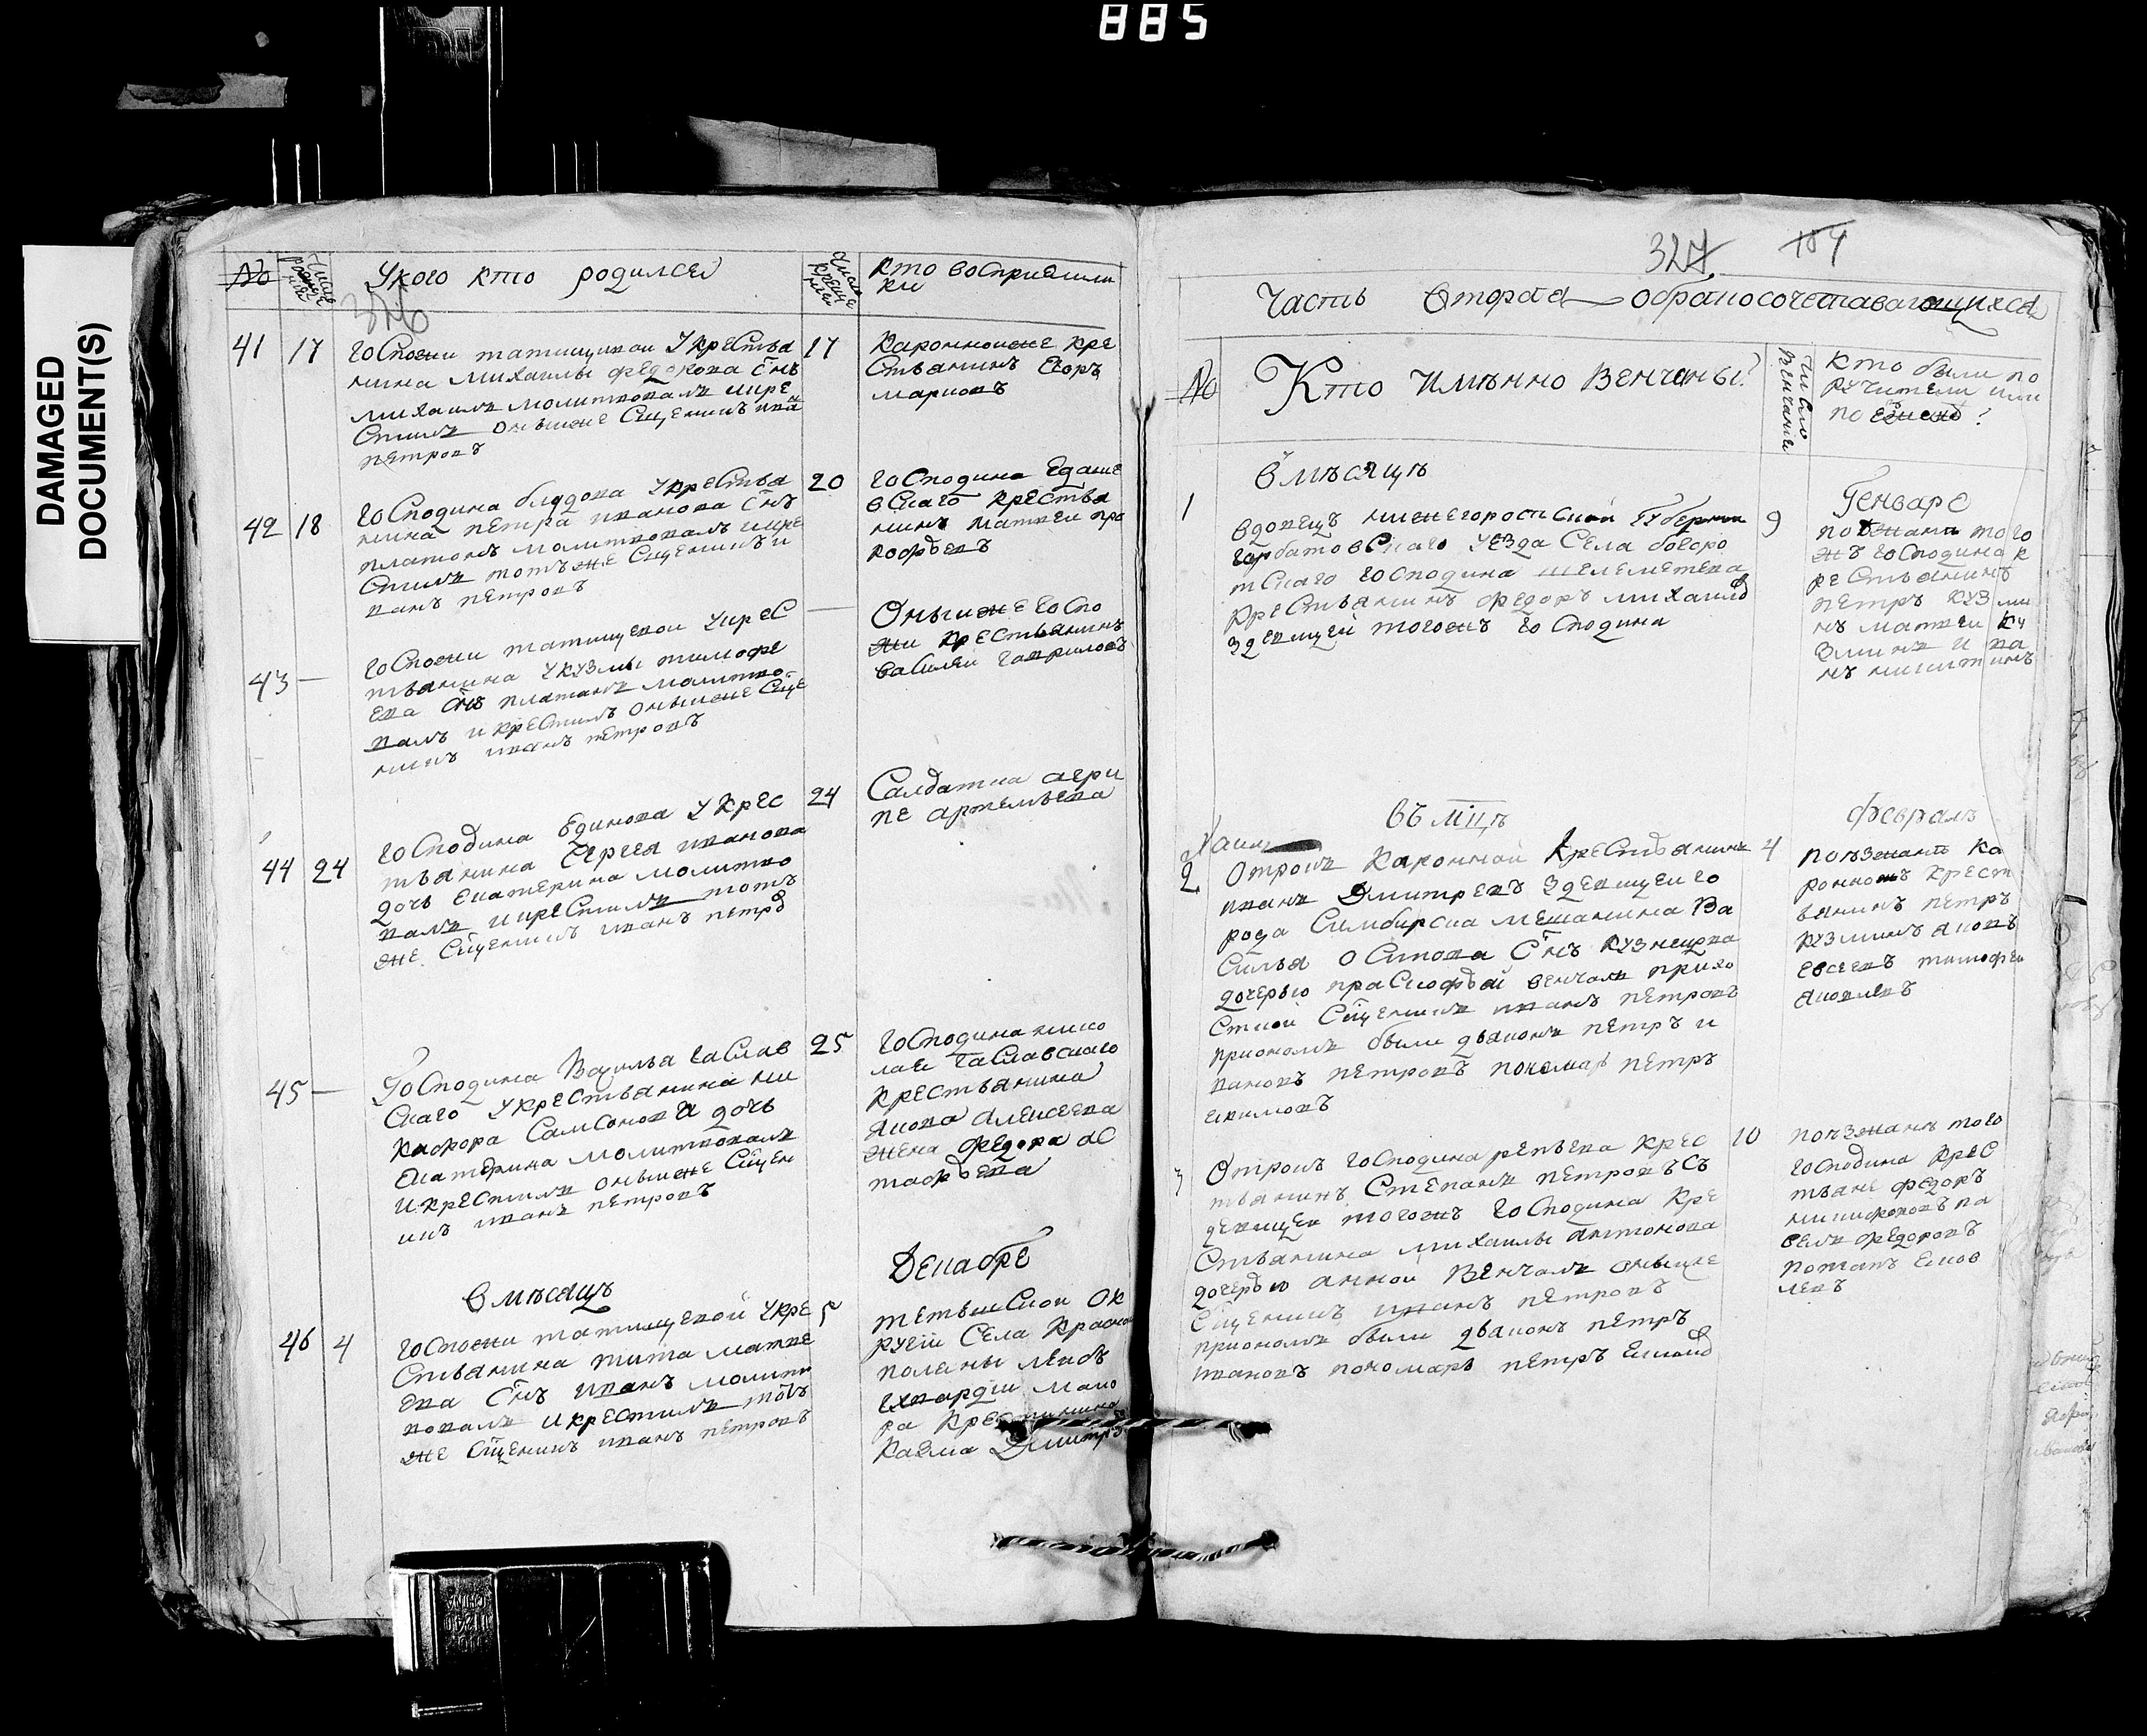 885
DAMAGED
DOCUMENT(S)
No
Число рождения
У кого кто родился
Число крещения
Кто восприемни
ки
326
41 17
Госпожи татищивои У крестья
нина михаилы федорова Снъ
михаилъ молитвовалъ икре
стилъ онымже Сщенникъ ива
петровъ
17
Кароннонже кре
стьянинъ Егоръ
марковъ
42 18
Господина блудова Укрестья
нина петра иванова Снъ
платонъ молитвовалъ икре
стилъ тотъже Сщенникъ и
ванъ петровъ
20
Господина Едаше
вскаго крестья
нинъ матвеи про
кофьевъ
43 —
Госпожи татищевои Укрес
тьянина Укузмы тимофе
ева Снъ платонъ молитво
валъ и крестилъ онымже Сще
никъ иванъ петровъ
—
Онымже Госпо
жи крестьянинъ
василеи гавриловъ
44 24
Господина Единова Укрес
тьянина Сергея иванова
дочь Екатерина молитво
валъ и крестилъ тотъ
же Сщенникъ иванъ петро
24
Салдатка агри
пе артемьева
45 —
Господина Василья Гаслав
скаго Укрестьянина ни
кифора Самсонова дочь
Екатерина молитвовалъ
и крестилъ онымже Сщен
икъ иванъ петровъ
25
Господина нико
лаи Гаславскаго
крестьянина
якова алексеева
жена федора ас
тафьева
в месяцъ
Декабре
46 4
Госпожи татищевой Укре
стьянина тита матве
ева Снъ иванъ молитв
вовалъ и крестилъ тотъ
же Сщенникъ иванъ петровъ
5
тетьшской ок
ругій Села Красно
поляны леибъ
гвардіи маио
ра
Дмитр
327
184
Часть вторая обракосочетавающихся
No
Кто имянно венчаны?
Число венчания
Кто были по
ручители или
по
в месяцъ
Генваре
1
вдовецъ нижегороцской Губерни
горбатовскаго Уезда Села богоро
тскаго Господина шелеметева
крестьянинъ федоръ михаило
здевицей тогожъ Господина
9
поезжаня того
жъ Господина к
рестьянинъ
петръ кузми
нъ матвеи ку
зминъ и ва
нъ никитинъ
въ мцъ
февраль
2
отрокъ каронной крестьянинъ
иванъ Дмитревъ здевицеи го
рода Симбирска мещанина Ва
силья Осипова Снъ кузнецова
дочерью прасковьей венчалъ прихо
сткои Сщенникъ иванъ петровъ
приономъ были дьяконъ петръ и
вановъ петровъ пономарь петръ
екимовъ
4
поезжаня ка
роннонъ крест
ьянинъ петръ
кузминъ яковъ
евсеевъ тимофеи
яковлевъ
3
отрокъ Господина репьева крес
тьянинъ Степанъ петровъ съ
девицеи тогожъ Господина кре
стьянина михаилы антонова
дочерью анной венчалъ онымже
Сщенникъ иванъ петровъ
приономъ были дьяконъ петръ
ивановъ пономарь петръ
10
поезжанъ того
Господина крес
тьяне федоръ
никифоровъ па
велъ федоровъ
потапъ яков
левъ